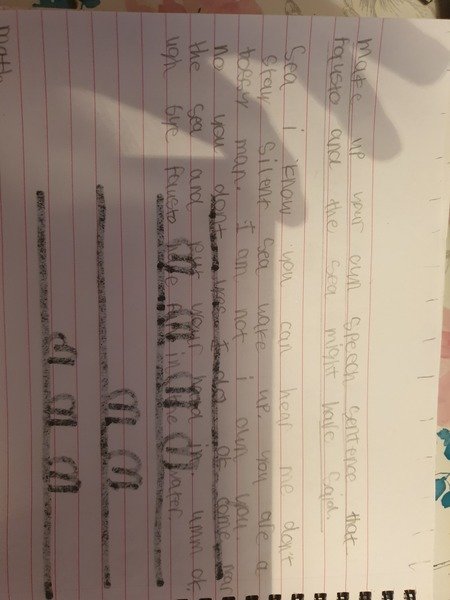 make up your own speech sentence that
fausto and the sea might have said.
Sea i know you can hear me don't
stay silent sea wake up. you are a
bossy man. I am not i own you
no you don't yes I do ok come near
the sea and put your hand in. umm ok
ugh bye fausto in the water